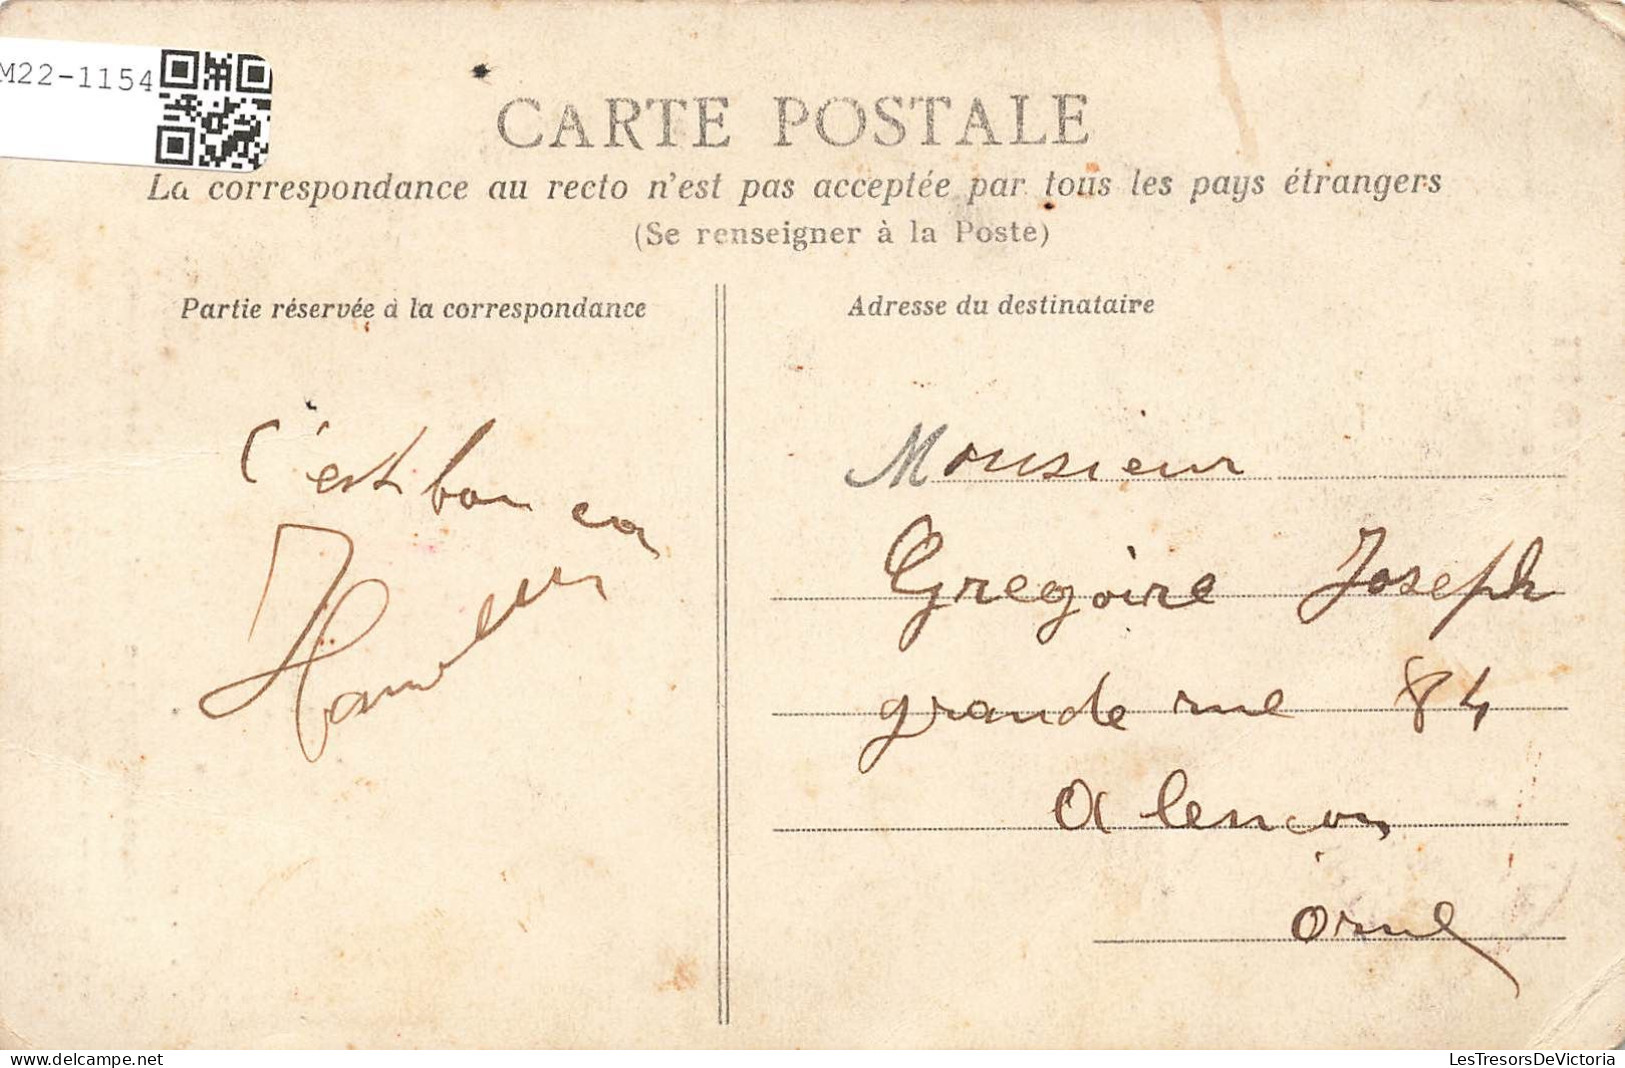 M22-1154
CARTE POSTALE
La correspondance au recto n'est pas acceptée par tous les pays étrangers
(Se renseigner à la Poste)
Partie réservée à la correspondance
Adresse du destinataire
C'est bon ca
Monsieur
Gregoire Joseph
grande rue 84
Alencon
Orne
www.delcampe.net
LesTresorsDeVictoria